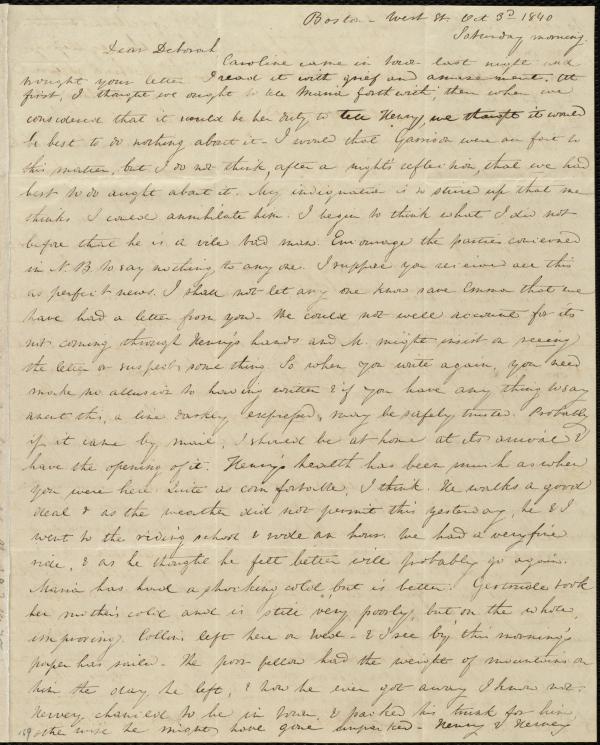 Boston - West St. Oct 3d 1840
Saturday morning.
Dear Deborah
Caroline came in town last night and
brought your letter. I read it with grief and amazement. At
first, I thought we ought to tell Maria forthwith; then when we
considered that it would be her duty to tell Henry, we thought it would
be best to do nothing about it - I would that Garrison were au fait to
this matter, but I do not think, after a night's reflection, that we had
best to do aught about it. My indignation is so stirred up that me
thinks I could annihilate him. I began to think what I did not
before that he is a vile bad man. Encourage the parties concerned
in N. B. to say nothing to any one. I suppose you received all this
as perfect news. I shall not let any one know save Emma that we
have had a letter from you - We could not well account for its
not coming through Henry's hands and M. might insist on seeing
the letter or suspect something. So when you write again, you need
make no allusion to having written & if you have any thing to say
about this, a line darkly expressed, may be safely trusted. Probably
if it came by mail, I should be at home at its arrival &
have the opening of it. Henry's health has been much as when
you were here. Quite as comfortable, I think. He walks a good
deal & as the weather did not permit this yesterday, he & I
went to the riding school & rode an hour. We had a very fine
ride, & as he thought he felt better will probably go again.
Maria has had a shocking cold, but is better. Gertrude took
her mother's cold and is still very poorly, but on the whole,
improving. Collins left here on Wed - & I see by this morning's
paper has sailed - The poor fellow had the weight of mountains on
him the day he left, & how he ever got away I know not.
Hervey chanced to be in town, & packed his trunk for him,
otherwise he might have gone unpacked - Henry & Hervey